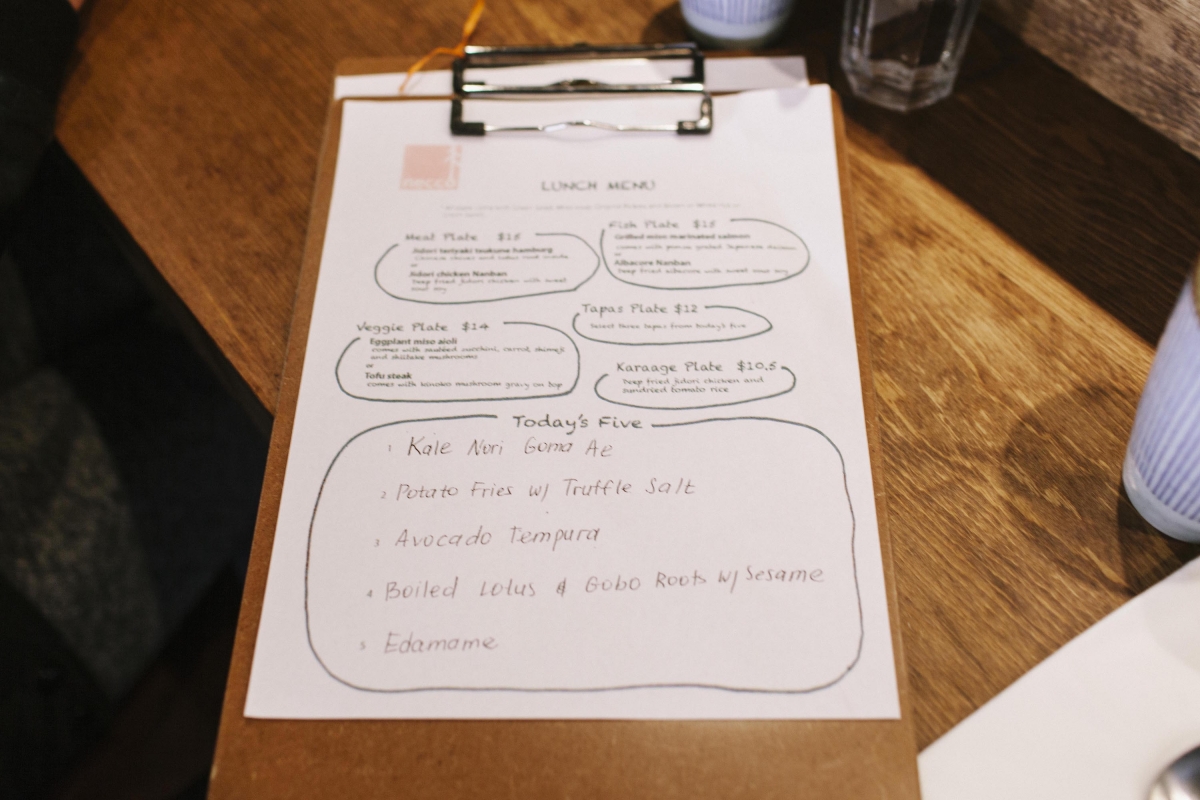 necco
LUNCH MENU
Meat Plate $15
Jidori teriyaki tsukune hamburg
or
Jidori chicken Nanban
Deep fried Jidori chicken with sweet
sour soy
Fish Plate $15
Grilled miso marinated salmon
comes with ponzu grated Japanese daikon
or
Albacore Nanban
Deep fried albacore with sweet sour soy
Tapas Plate $12
Select three tapas from today's five
Veggie Plate $14
Eggplant miso aioli
comes with sautéed zucchini, carrot, shimeji
and shiitake mushrooms
or
Tofu steak
comes with kinoko mushroom gravy on top
Karaage Plate $10.5
Deep fried Jidori chicken and
sundried tomato rice
Today's Five
1 Kale Nori Goma Ae
2 Potato Fries w/ Truffle Salt
3 Avocado Tempura
4 Boiled Lotus & Gobo Roots w/ Sesame
5 Edamame